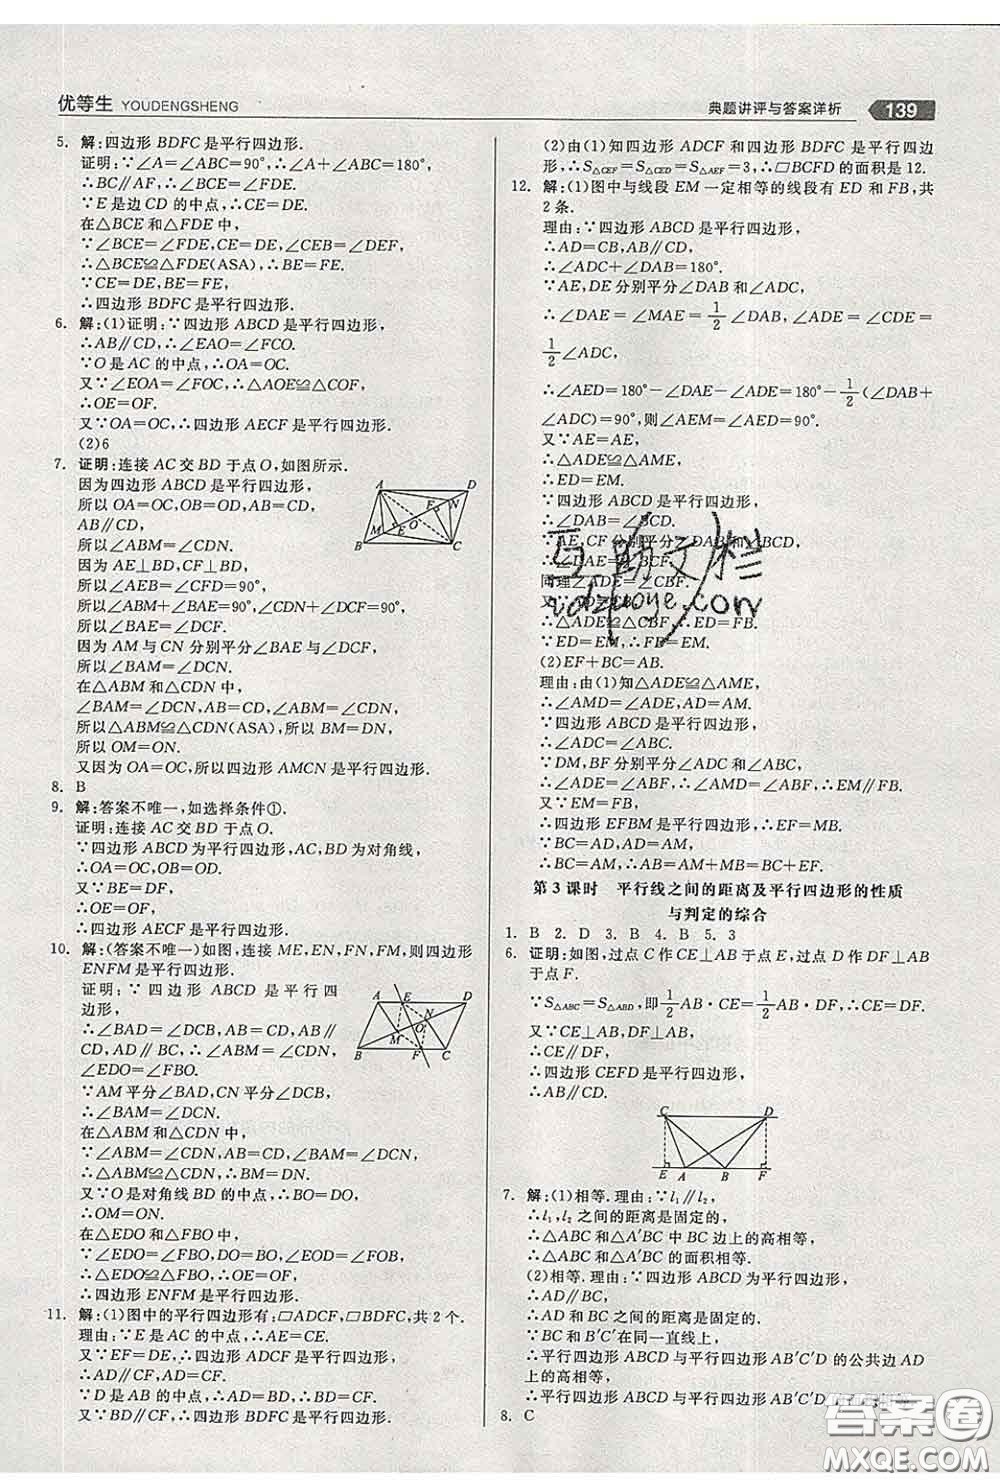 优等生 YOUDENGSHENG
典题讲评与答案详析 139
5. 解:四边形 BDFC 是平行四边形.
证明:∵∠A=∠ABC=90°,∴∠A+∠ABC=180°,
∴BC∥AF,∴∠CBE=∠DFE.
∵E 是边 CD 的中点,∴CE=DE.
在△BCE 和△FDE 中,
∵∠BCE=∠FDE,CE=DE,∠CEB=∠DEF,
∴△BCE≌△FDE(ASA),∴BE=FE.
∵CE=DE,BE=FE,
∴四边形 BDFC 是平行四边形.
6. 解:(1)证明:∵四边形 ABCD 是平行四边形,
∴AB∥CD,∴∠EAO=∠FCO.
∵O 是 AC 的中点,∴OA=OC.
又∵∠EOA=∠FOC,∴△AOE≌△COF,
∴OE=OF.
又∵OA=OC,∴四边形 AECF 是平行四边形.
(2)6
7. 证明:连接 AC 交 BD 于点 O,如图所示.
因为四边形 ABCD 是平行四边形,
所以 OA=OC,OB=OD,AB=CD,
AB∥CD,
所以∠ABM=∠CDN.
因为 AE⊥BD,CF⊥BD,
所以∠AEB=∠CFD=90°,
所以∠ABM+∠BAE=90°,∠CDN+∠DCF=90°,
所以∠BAE=∠DCF.
因为 AM 与 CN 分别平分∠BAE 与∠DCF,
所以∠BAM=∠DCN.
在△ABM 和△CDN 中,
∠BAM=∠DCN,AB=CD,∠ABM=∠CDN,
所以△ABM≌△CDN(ASA),所以 BM=DN,
所以 OM=ON.
又因为 OA=OC,所以四边形 AMCN 是平行四边形.
A D F N O M E B C
8. B
9. 解:答案不唯一,如选择条件①.
证明:连接 AC 交 BD 于点 O.
∵四边形 ABCD 为平行四边形,AC,BD 为对角线,
∴OA=OC,OB=OD.
又∵BE=DF,
∴OE=OF,
∴四边形 AECF 是平行四边形.
10. 解:(答案不唯一)如图,连接 ME,EN,FN,FM,则四边形
ENFM 是平行四边形.
证明:∵四边形 ABCD 是平行四
边形,
∴∠BAD=∠DCB,AB=CD,AB∥
CD,AD∥BC,∴∠ABM=∠CDN,
∠EDO=∠FBO.
∵AM 平分∠BAD,CN 平分∠DCB,
∴∠BAM=∠DCN.
在△ABM 和△CDN 中,
∵∠BAM=∠DCN,AB=CD,∠ABM=∠CDN,
∴△ABM≌△CDN,∴BM=DN.
又∵O 是对角线 BD 的中点,∴BO=DO,
∴OM=ON.
在△EDO 和△FBO 中,
∵∠EDO=∠FBO,OD=OB,∠EOD=∠FOB,
∴△EDO≌△FBO,∴OE=OF,
∴四边形 ENFM 是平行四边形.
A E D N O M B F C
11. 解:(1)图中的平行四边形有:▱ADCF,▱BDFC,共 2 个.
理由:∵E 是 AC 的中点,∴AE=CE.
又∵EF=DE,∴四边形 ADCF 是平行四边形,
∴AD∥CF,AD=CF.
∵D 是 AB 的中点,∴AD=BD,∴BD=CF.
又∵BD∥CF,∴四边形 BDFC 是平行四边形.
(2)由(1)知四边形 ADCF 和四边形 BDFC 是平行四边
形,∴S△CEF=S△CED=S△AEF=3,∴▱BCFD 的面积是 12.
12. 解:(1)图中与线段 EM 一定相等的线段有 ED 和 FB,共
2 条.
理由:∵四边形 ABCD 是平行四边形,
∴AD=CB,AB∥CD,
∴∠ADC+∠DAB=180°.
∵AE,DE 分别平分∠DAB 和∠ADC,
∴∠DAE=∠MAE=1/2∠DAB,∠ADE=∠CDE=
1/2∠ADC,
∴∠AED=180°-∠DAE-∠ADE=180°-1/2(∠DAB+
∠ADC)=90°,则∠AEM=∠AED=90°.
又∵AE=AE,
∴△ADE≌△AME,
∴ED=EM.
∵四边形 ABCD 是平行四边形,
∴∠DAB=∠BCD.
∵AE,CF 分别平分∠DAB 和∠BCD,
∴∠DAE=∠BCF.
同理∠ADE=∠CBF.
又∵AD=CB,
∴△ADE≌△CBF,∴ED=FB.
∵ED=EM,∴EM=FB.
(2)EF+BC=AB.
理由:由(1)知△ADE≌△AME,
∴∠AMD=∠ADE,AD=AM.
∵四边形 ABCD 是平行四边形,
∴∠ADC=∠ABC.
∵DM,BF 分别平分∠ADC 和∠ABC,
∴∠ADE=∠ABF,∴∠AMD=∠ABF,∴EM∥FB.
又∵EM=FB,
∴四边形 EFBM 是平行四边形,∴EF=MB.
∵BC=AD,AD=AM,
∴BC=AM,∴AB=AM+MB=BC+EF.
第 3 课时 平行线之间的距离及平行四边形的性质
与判定的综合
1. B 2. D 3. B 4. B 5. 3
6. 证明:如图,过点 C 作 CE⊥AB 于点 E,过点 D 作 DF⊥AB
于点 F.
∵S△ABC=S△ABD,即1/2AB·CE=1/2AB·DF,∴CE=DF.
又∵CE⊥AB,DF⊥AB,
∴CE∥DF,
∴四边形 CEFD 是平行四边形,
∴AB∥CD.
C D E A B F
7. 解:(1)相等.理由:∵l₁∥l₂,
∴l₁,l₂ 之间的距离是固定的,
∴△ABC 和△A′BC 中 BC 边上的高相等,
∴△ABC 和△A′BC 的面积相等.
(2)相等.理由:∵四边形 ABCD 是平行四边形,
∴AD 和 BC 之间的距离是固定的.
∵BC 和 B′C′ 在同一直线上,
∴平行四边形 ABCD 与平行四边形 AB′C′D 的公共边 AD
上的高相等,
∴平行四边形 ABCD 与平行四边形 AB′C′D
8. C
互助文栏
答案圈
MXQE.COM